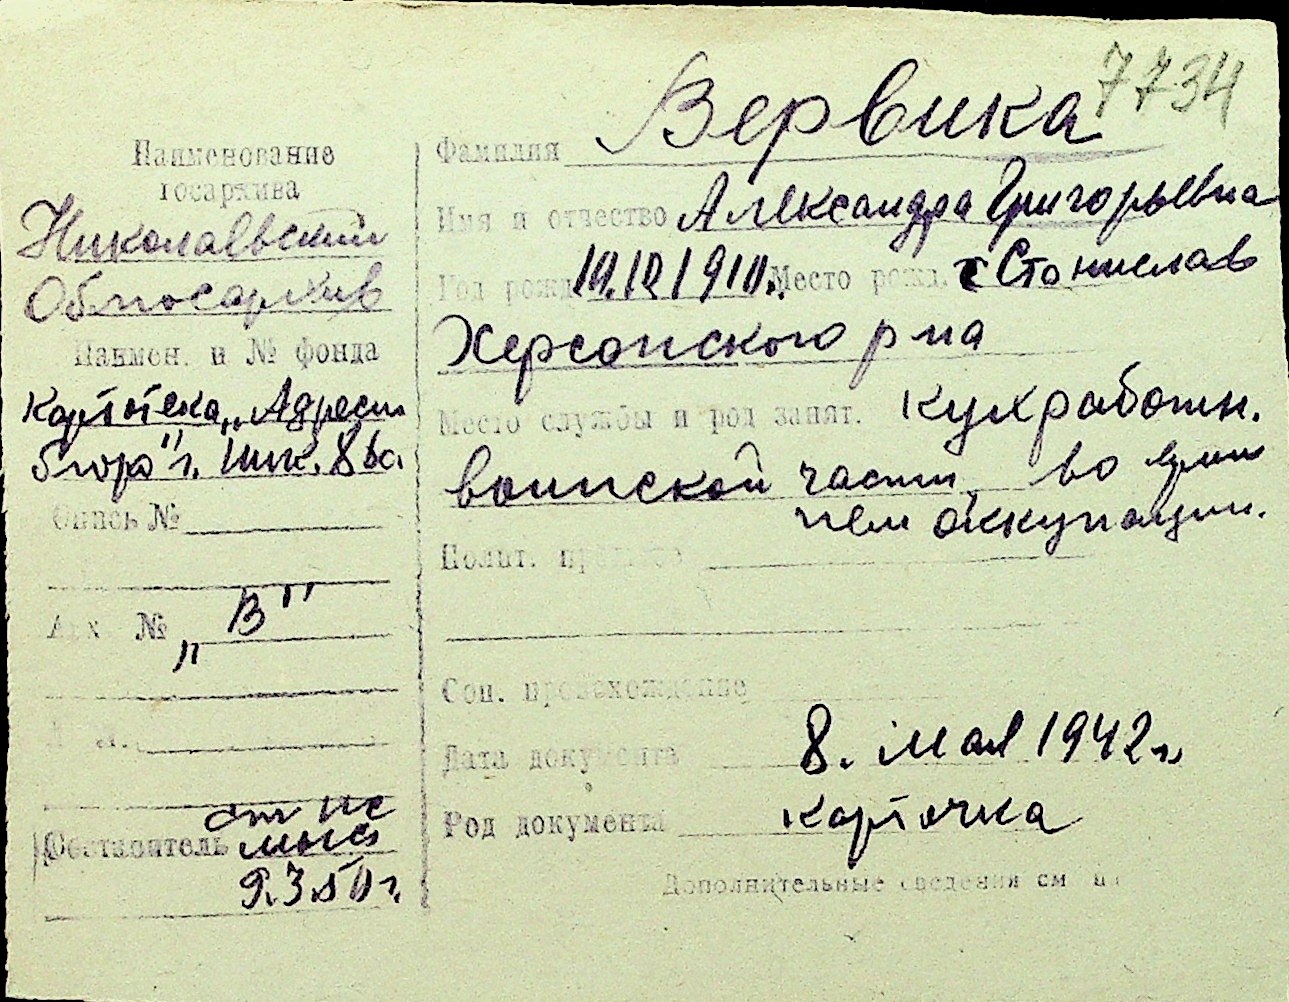 7734
Наименование
госархива
Николаевский
Облгосархив
Наимен. и № фонда
Картотека „Адресн
бюро" г. Ник.
Опись №
Арх №
„В"
Составитель
9.3.50 г.
Фамилия Вервика
Имя и отчество Александра Григорьевна
Год рожд. 19.10.1910 г. Место рожд. с Станислав
Херсонского р на
Место службы и род занят. кухработн.
воинской части, во время
нем оккупации.
Полит. прошлое
Соц. происхождение
Дата документа 8. мая 1942 г.
Род документа карточка
Дополнительные сведения см